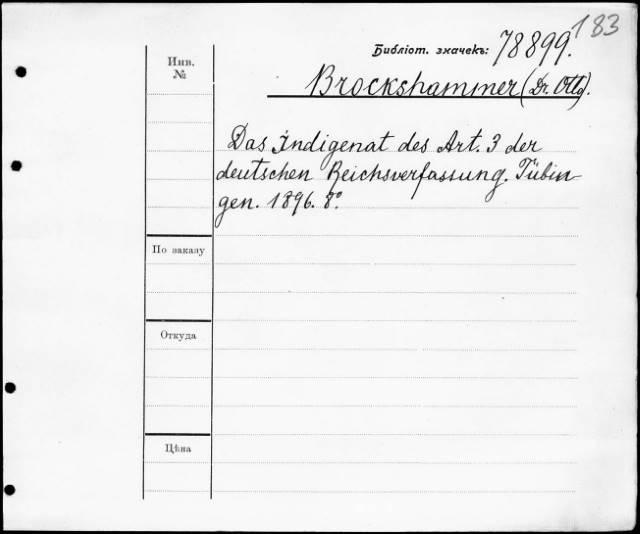 183
Библіот. значекъ: 78899.
Инв.
№
Brockshammer (Dr. Otto).
Das Indigenat des Art. 3 der
deutschen Reichsverfassung. Tübin-
gen. 1896. 8°.
По заказу
Откуда
Цѣна